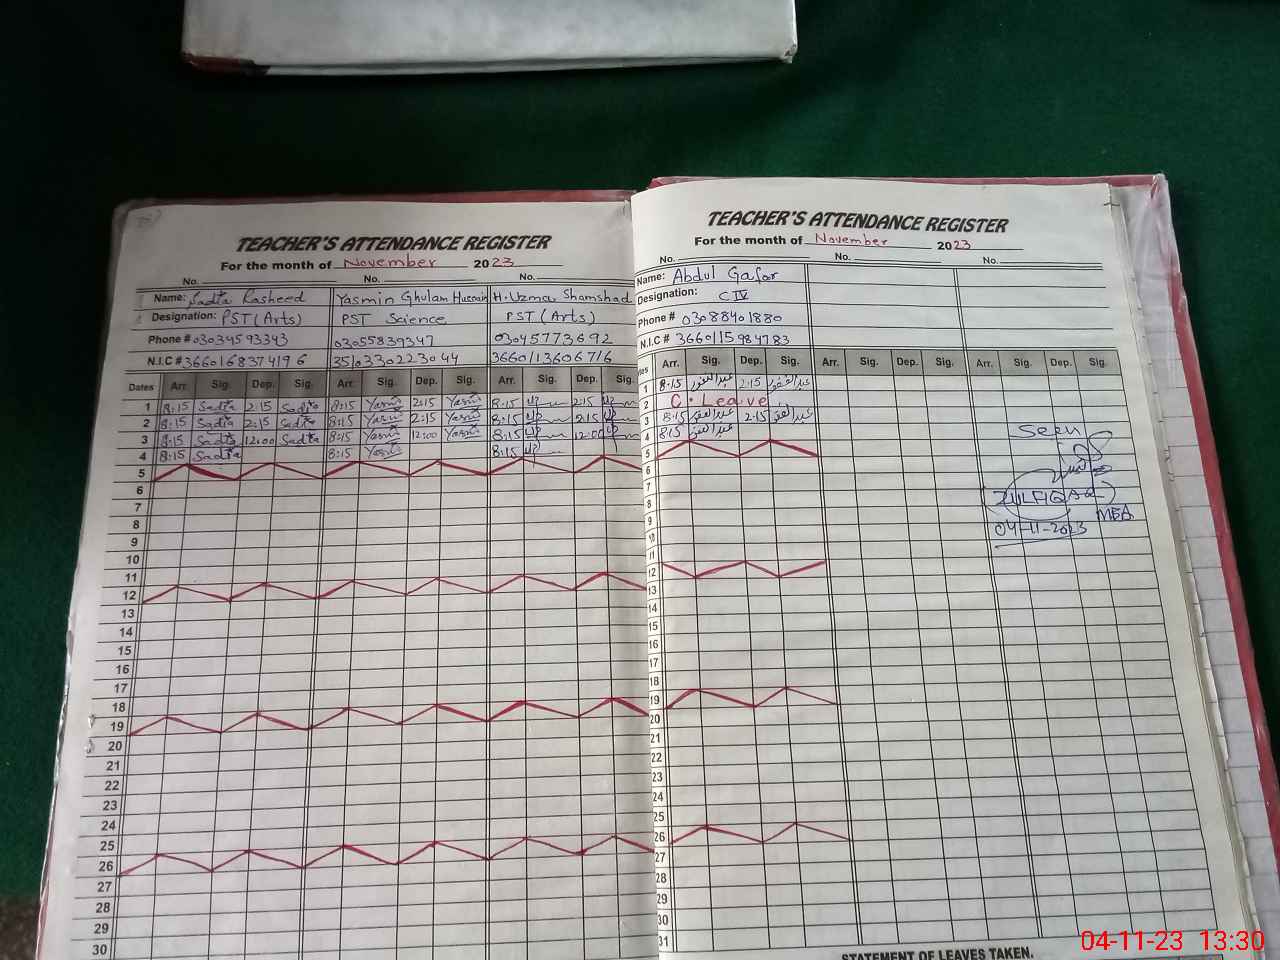 TEACHER'S ATTENDANCE REGISTER
For the month of November 2023
No. No. No.
Name: Sadia Rasheed Yasmin Ghulam Hussain H. Uzma Shamshad
Designation: PST (Arts) PST Science PST (Arts)
Phone # 03034593343 03055839347 03045773692
N.I.C # 3660168374196 3510330223044 3660113606716
Dates Arr. Sig. Dep. Sig. Arr. Sig. Dep. Sig. Arr. Sig. Dep. Sig.
1 8:15 Sadia 2:15 Sadia 8:15 Yasmin 2:15 Yasmin 8:15 2:15
2 8:15 Sadia 2:15 Sadia 8:15 Yasmin 2:15 Yasmin 8:15 2:15
3 8:15 Sadia 12:00 Sadia 8:15 Yasmin 12:00 Yasmin 8:15 12:00
4 8:15 Sadia 8:15 Yasmin 8:15
5
6
7
8
9
10
11
12
13
14
15
16
17
18
19
20
21
22
23
24
25
26
27
28
29
30
TEACHER'S ATTENDANCE REGISTER
For the month of November 2023
No. No. No.
Name: Abdul Gafor
Designation: C IV
Phone # 03088401880
N.I.C # 3660115984783
Arr. Sig. Dep. Sig. Arr. Sig. Dep. Sig. Arr. Sig. Dep. Sig.
1 8:15 عبدالغفور 2:15 عبدالغفور
2 C. Leave
3 8:15 عبدالغفور 2:15 عبدالغفور
4 8:15 عبدالغفور
5
6
7
8
9
10
11
12
13
14
15
16
17
18
19
20
21
22
23
24
25
26
27
28
29
30
31
Seen
ZULFIQAR
MEA
04-11-2023
STATEMENT OF LEAVES TAKEN.
04-11-23 13:30